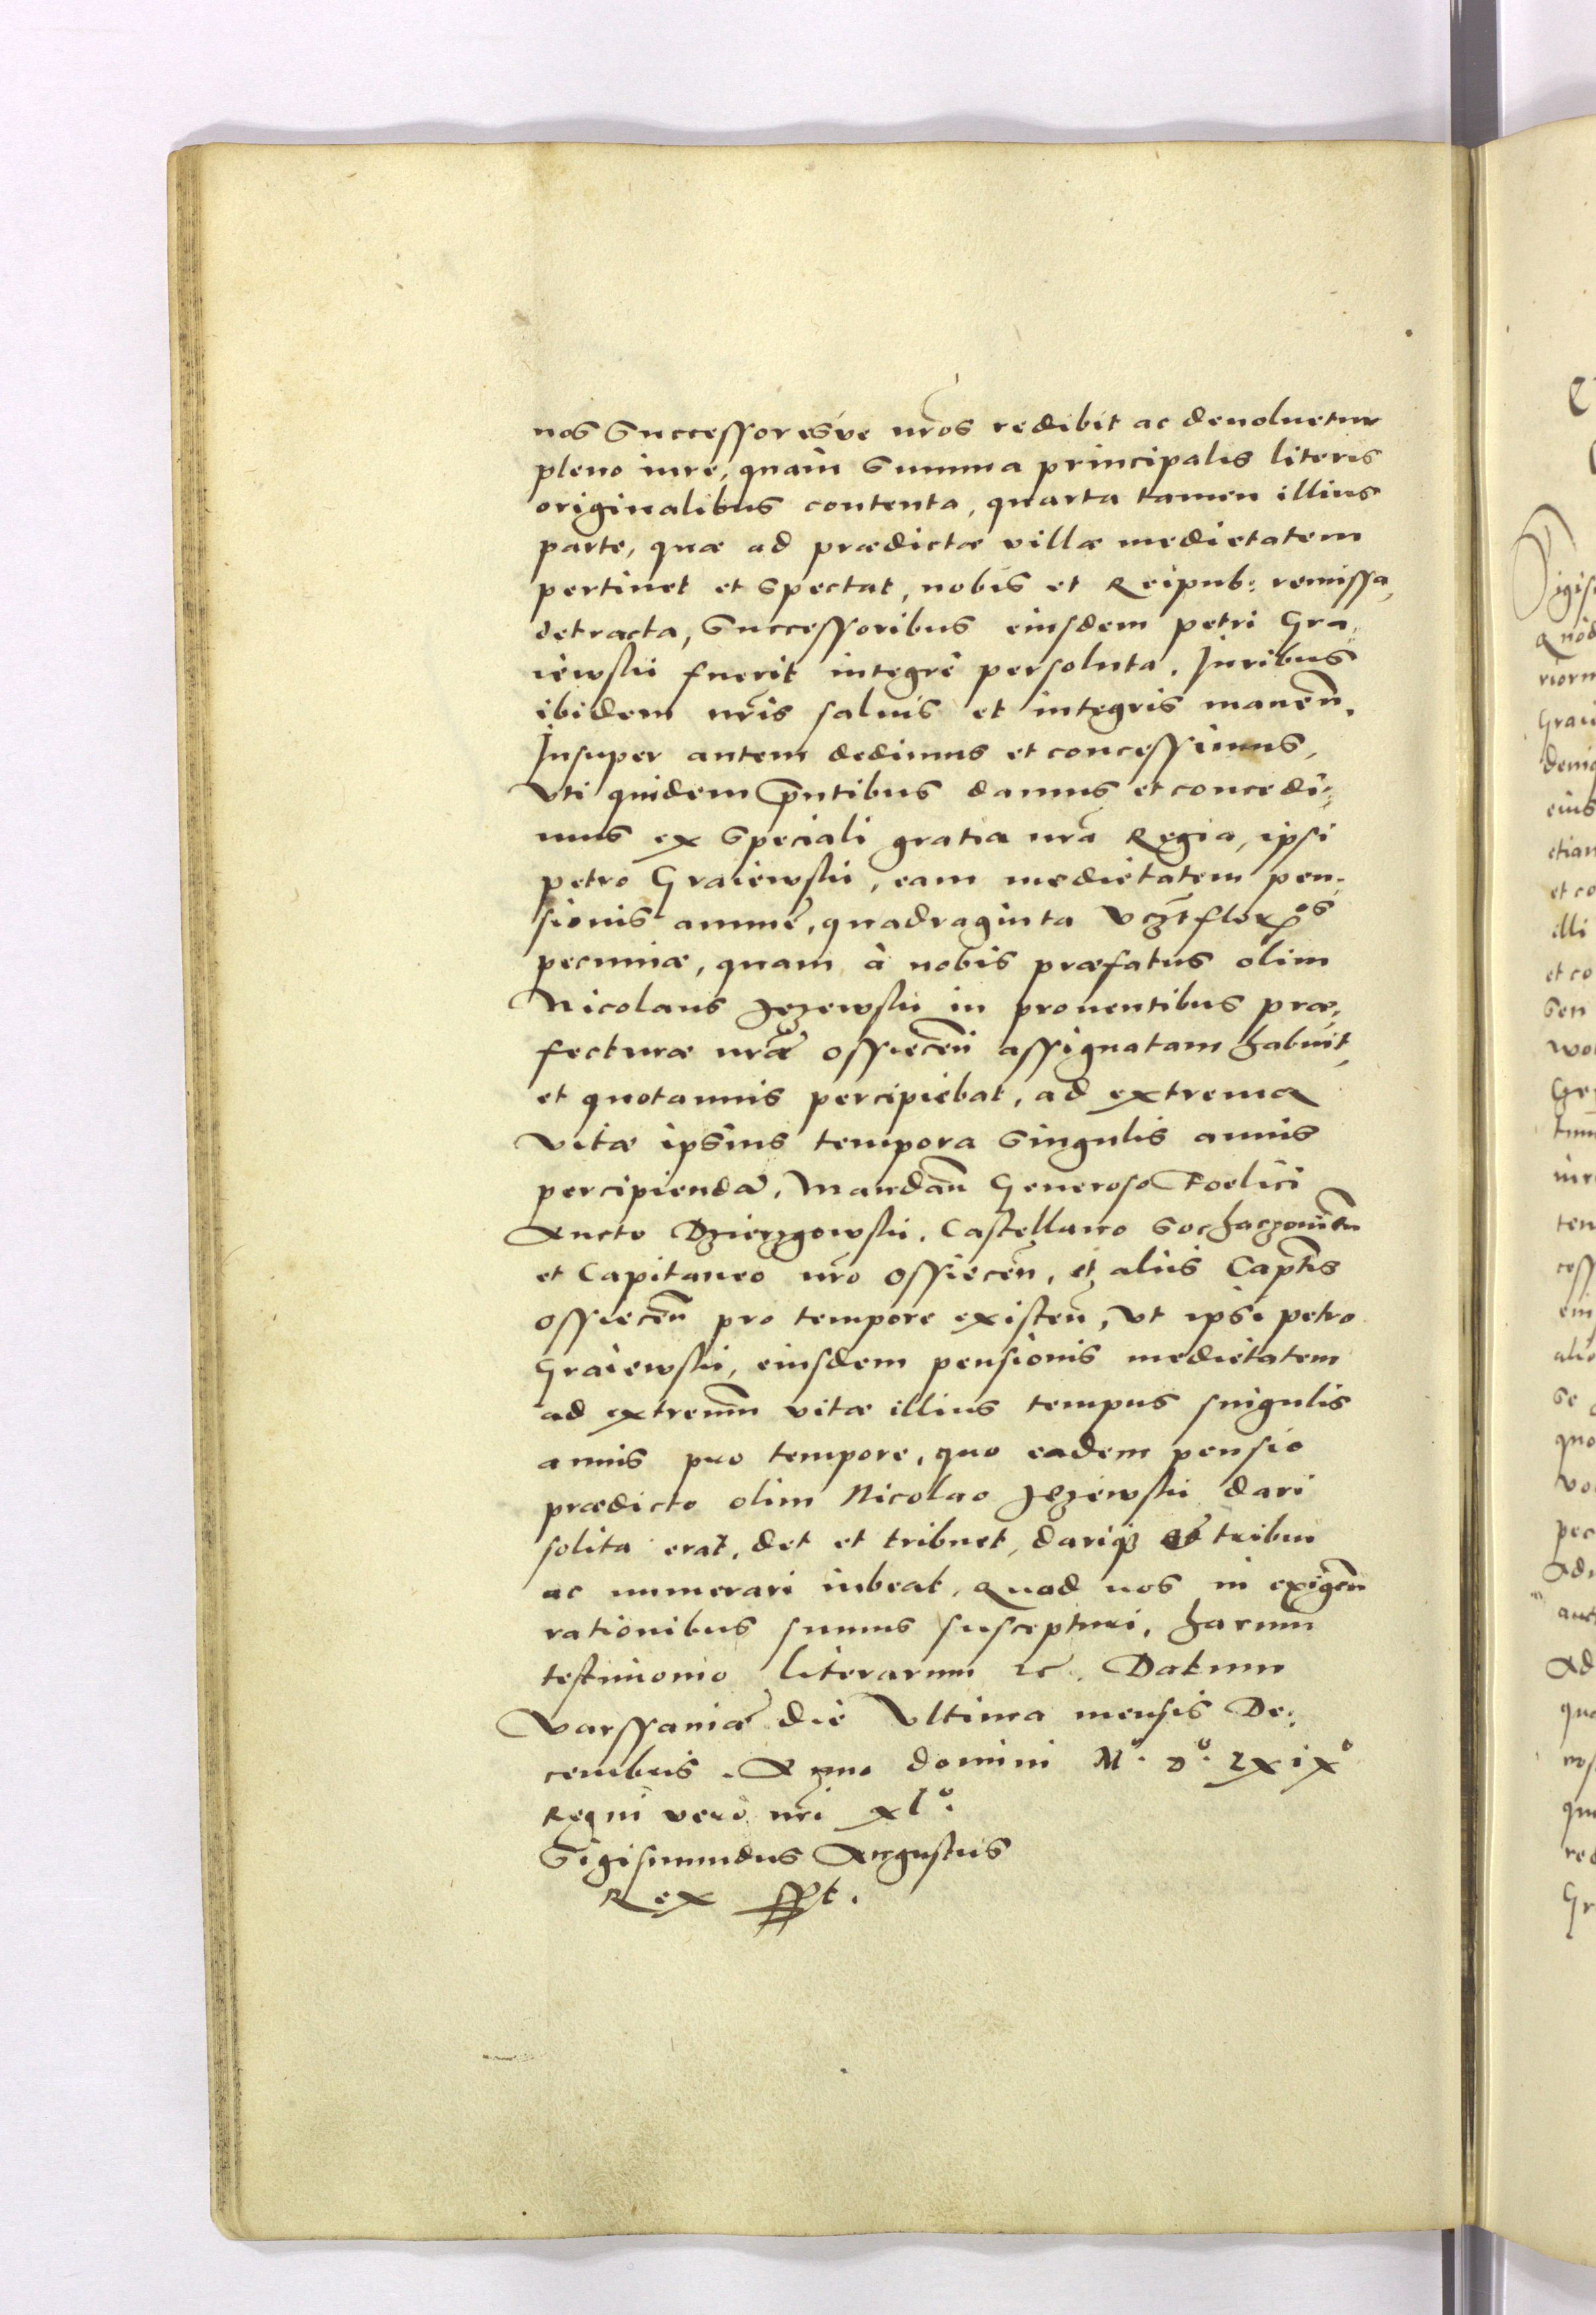 nos Successoresve nr̃os redibit ac devoluetur
pleno iure, quam Summa principalis literis
originalibus contenta, quarta tamen illius
parte, quæ ad prædictæ villæ medietatem
pertinet et Spectat, nobis et Reipub: remissa,
detracta, Successoribus eiusdem petri Gra,
iewskii fuerit integrè persoluta. Iuribus
ibidem nr̃is saluis et integris maneñ.
Insuper autem dedimus et concessimus,
Vti quidem p̃ntibus damus et concedi,
mus ex Speciali gratia nr̃a Regia, ipsi
petro Graiewskii, eam medietatem pen,
sionis annuæ, quadraginta
pecuniæ, quam à nobis præfatus olim
Nicolaus Jezewskii in prouentibus præ,
fecturæ nr̃æ Ossieceñ assignatam habuit,
et quotannis percipiebat, ad extrema
Vitæ ipsius tempora Singulis annis
percipiendã, Mandañ Generoso Foelici
Aucto Dzierzgowskii, Castellano Sochaczouieñ
et Capitaneo nr̃o Ossieceñ, et aliis Cap̃tis
Ossieceñ pro tempore existeñ, Vt ipsi petro
Graiewskii, eiusdem pensionis medietatem
ad extremũ vitæ illius tempus singulis
annis pro tempore, quo eadem pensio
prædicto olim Nicolao Jezewskii dari
solita erat, det et tribuet, dariqꝫ et tribui
ac numerari iubeat, Quod nos in exigeñ
rationibus sumus suscepturi, harum
testimonio literarum ꝛc. Datum
Varssauiæ die Vltima mensis De,
cembris. Anno domini Mº. Dº. LXiXº
Regni vero nr̃i xlº.
Sigismundus Augustus
Rex sspt.